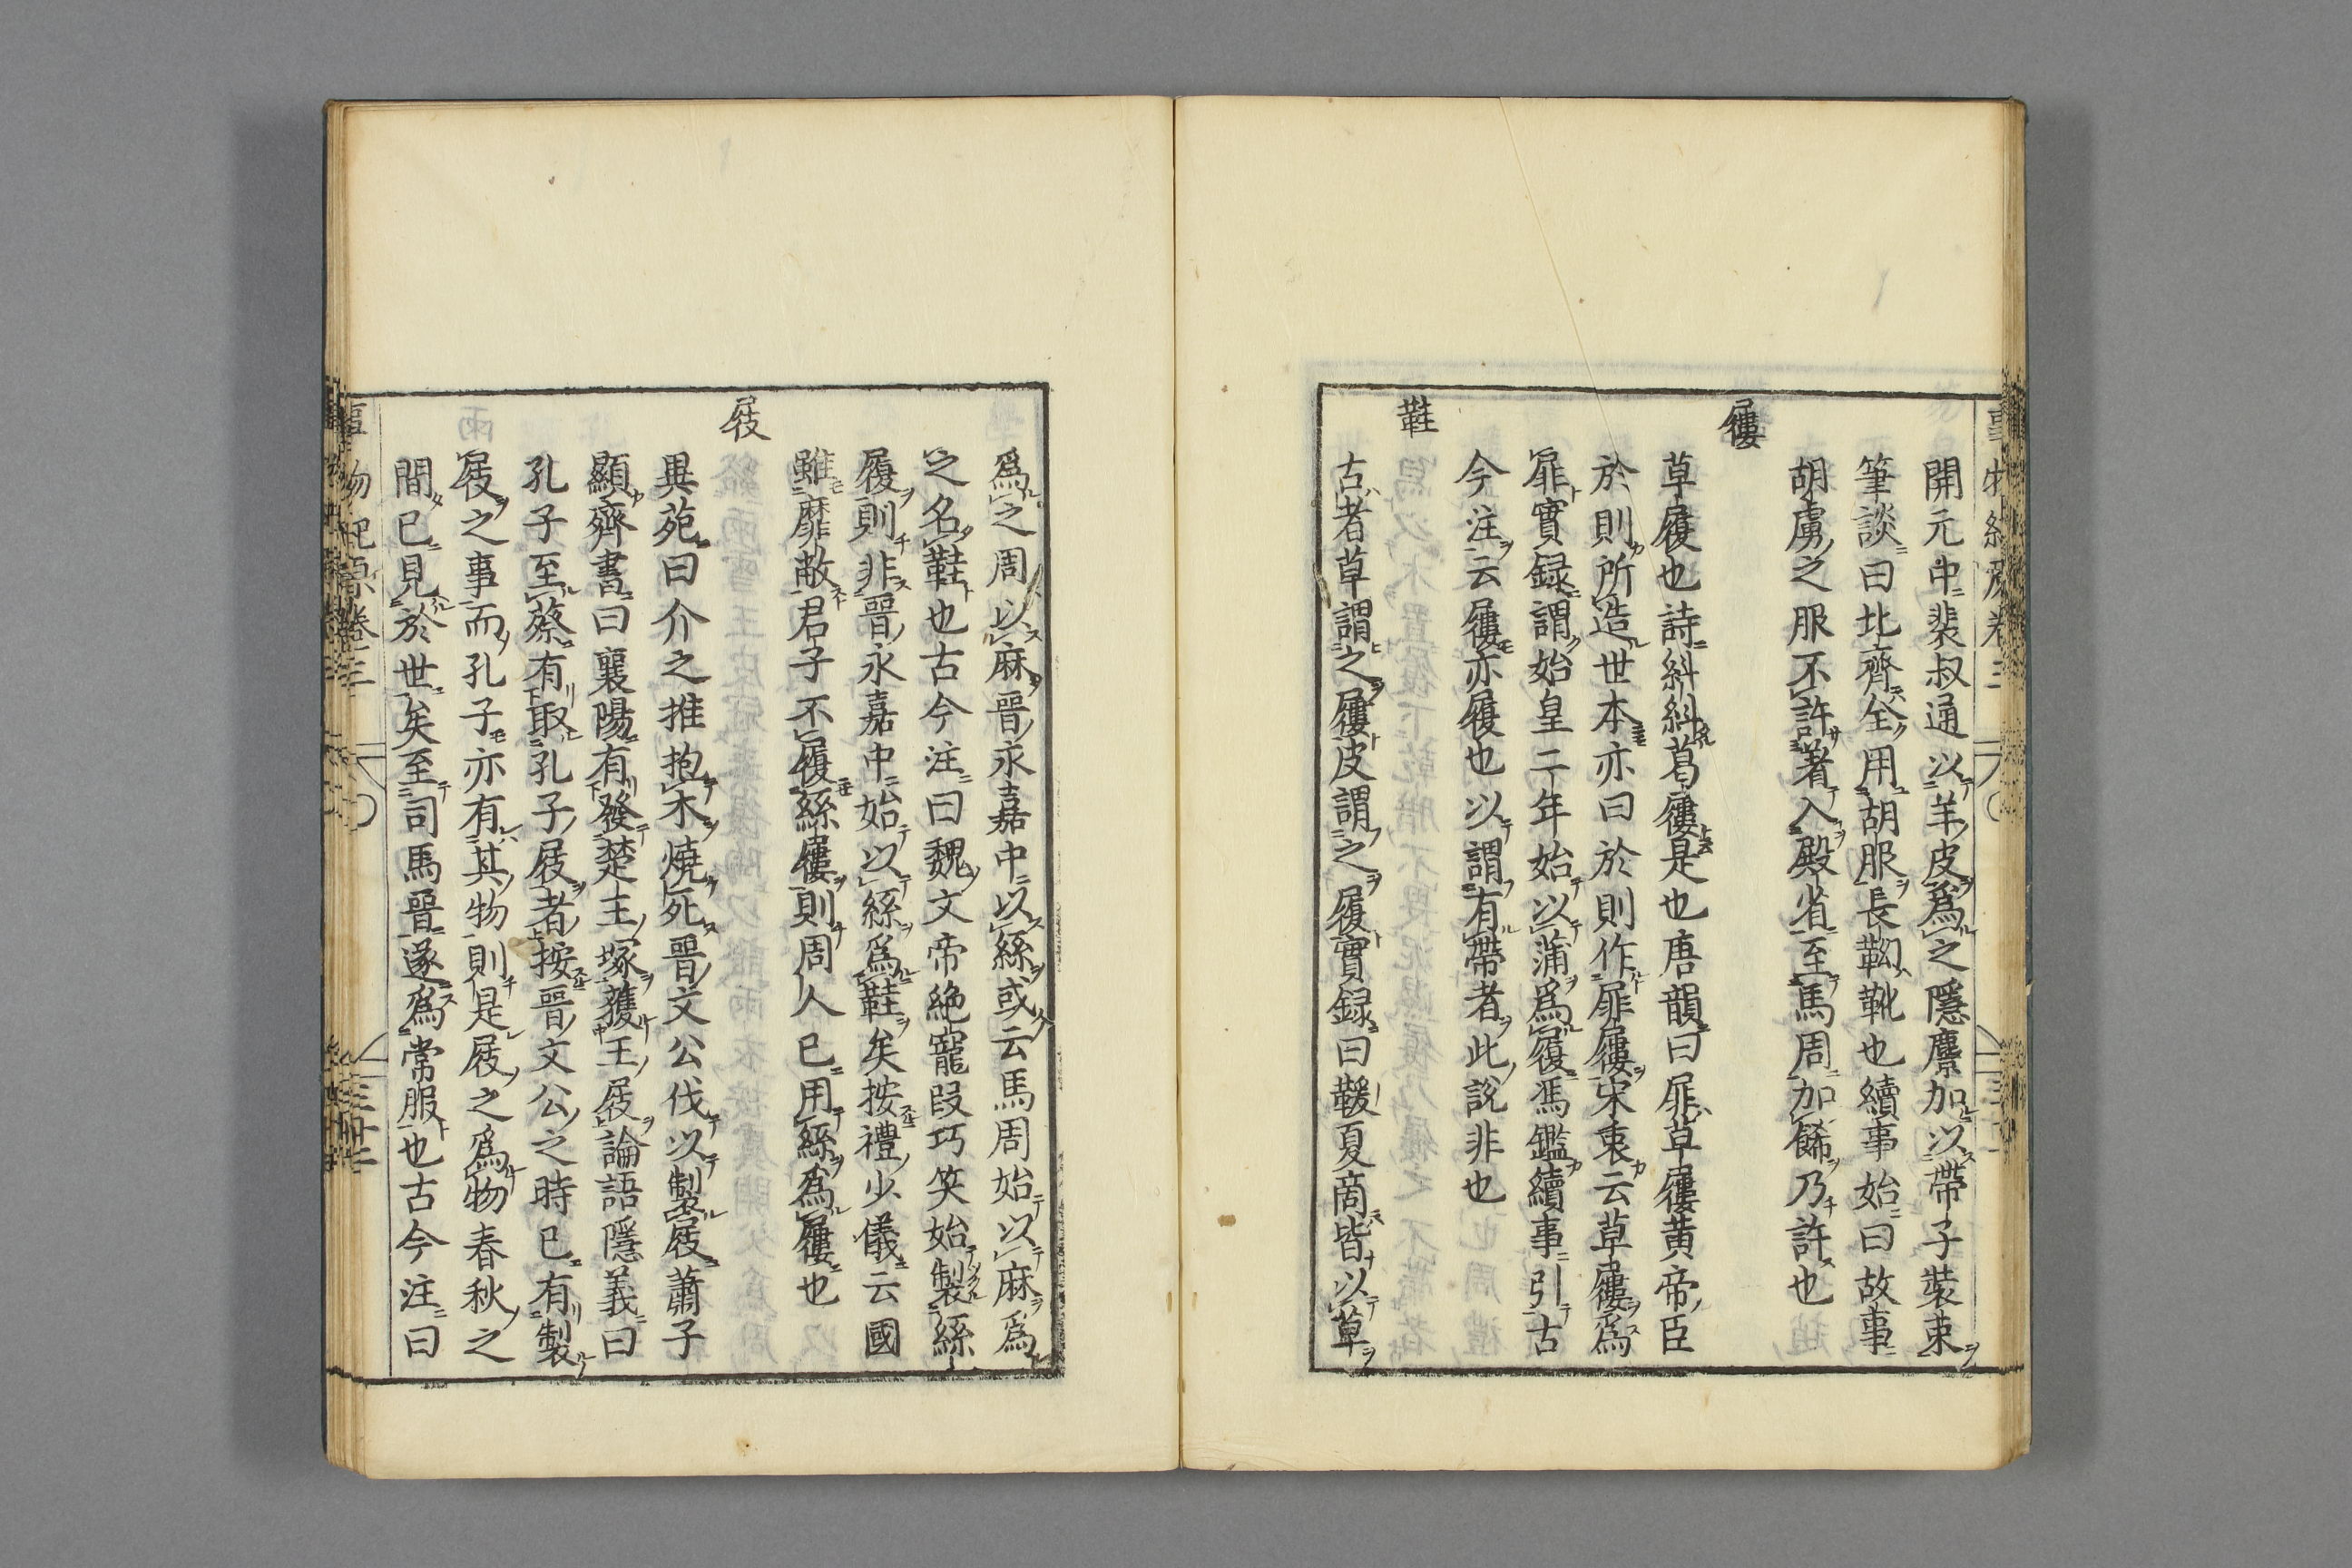 開元中裴叔通以羊皮爲之隱麖加以帶子裝束
筆談曰北齊全用胡服長靿靴也續事始曰故事
胡虜之服不許著入殿省至馬周加飾乃許也
屨
草履也詩糾糾葛屨是也唐韻曰屝草屨黄帝臣
於則所造世本亦曰於則作屝屨宋衷云草屨爲
屝實録謂始皇二年始以蒲爲履馮鑑續事引古
今注云屨亦履也以謂有帶者此說非也
鞋
古者草謂之屨皮謂之履實録曰鞵夏商皆以草
爲之周以麻晋永嘉中以絲或云馬周始以麻爲
之名鞋也古今注曰魏文帝絶寵段巧笑始製絲
履則非晋永嘉中始以絲爲鞋矣按禮少儀云國
雖靡敝君子不履絲屨則周人已用絲爲屨也
屐
異苑曰介之推抱木燒死晋文公伐以製屐蕭子
顯齊書曰襄陽有發楚王塚獲王屐論語隱義曰
孔子至蔡有取孔子屐者按晋文公之時已有製
屐之事而孔子亦有其物則是屐之爲物春秋之
間已見於世矣至司馬晋遂爲常服也古今注曰
事物紀原卷三
三十二